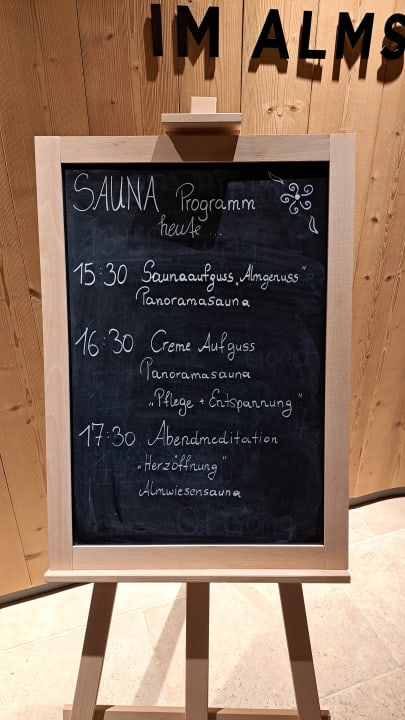 IM ALMS
SAUNA Programm
heute...
15:30 Saunaaufguss „Almgenuss"
Panoramasauna
16:30 Creme Aufguss
Panoramasauna
„Pflege + Entspannung"
17:30 Abendmeditation
„Herzöffnung"
Almwiesensauna